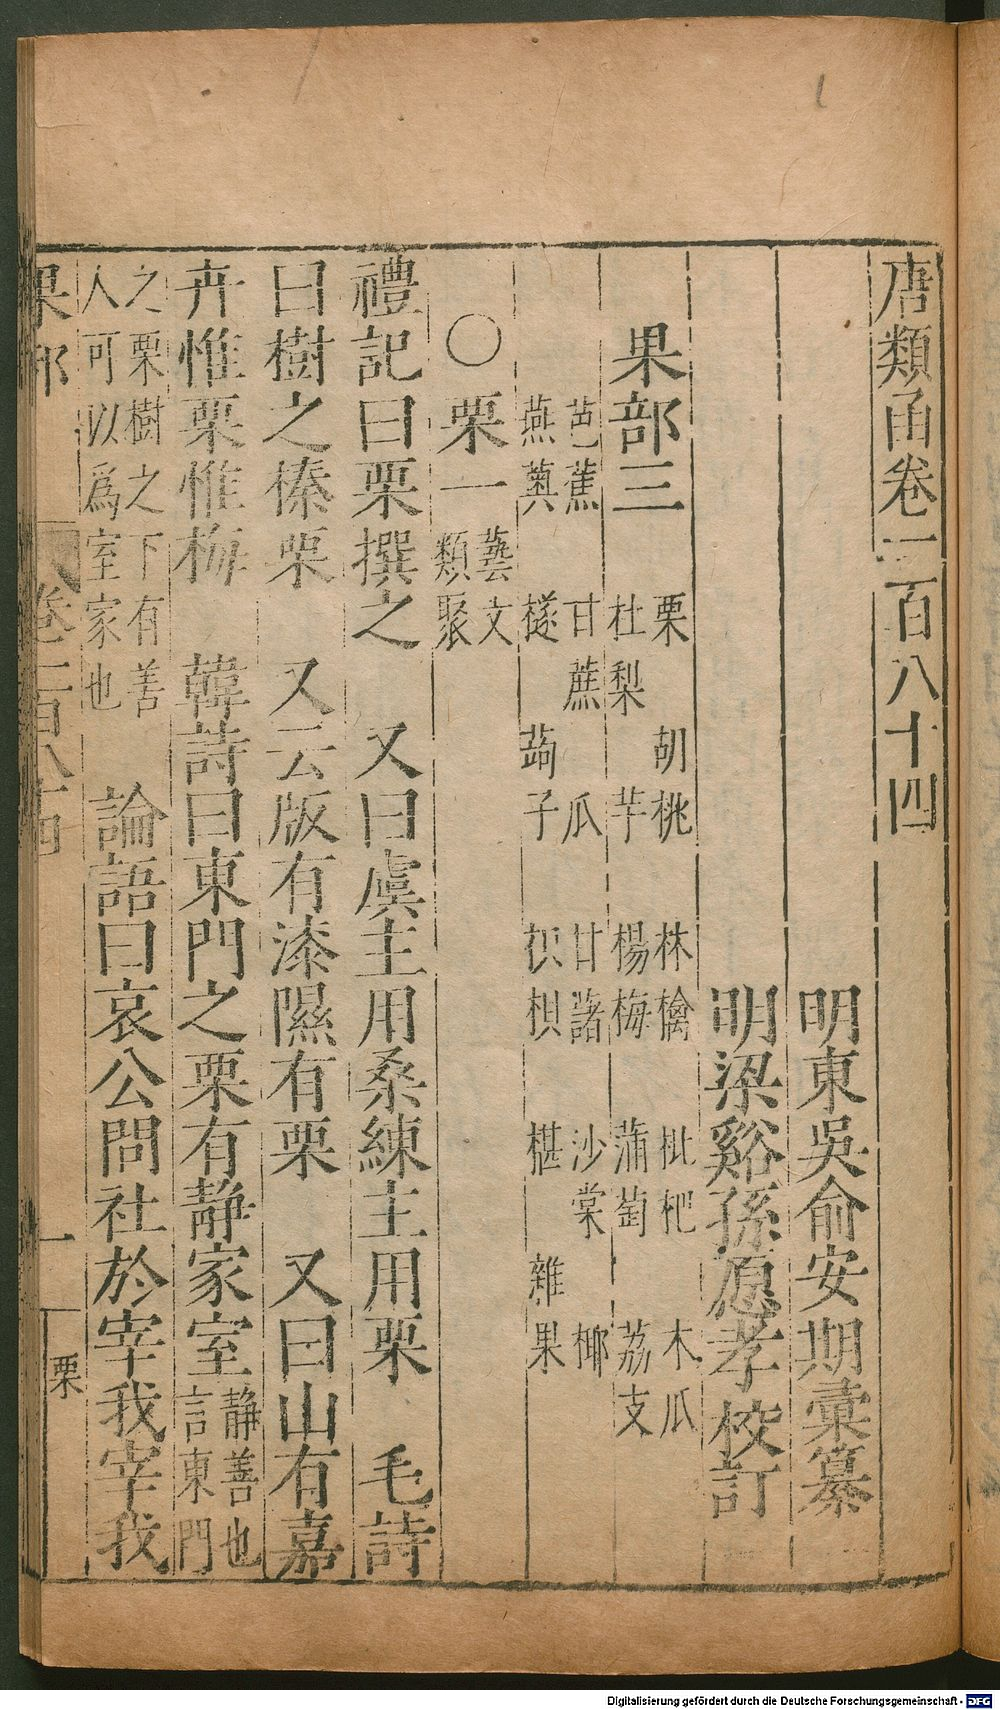 唐類函卷一百八十四
明東吳俞安期彙纂
明梁谿孫愿孝校訂
果部三
栗 胡桃 林檎 枇杷 木瓜
杜梨 芋 楊梅 蒲萄 荔支
芭蕉 甘蔗 瓜 甘藷 沙棠 椰
燕薁 檖 蒟子 枳椇 椹 雜果
〇栗一
藝文
類聚
禮記曰栗撰之 又曰虞主用桑練主用栗 毛詩
曰樹之榛栗 又云版有漆隰有栗 又曰山有嘉
卉惟栗惟梅 韓詩曰東門之栗有靜家室
靜善也
言東門
之栗樹之下有善
人可以為室家也
論語曰哀公問社於宰我宰我
果部 卷一百八十四 一 栗
Digitalisierung gefördert durch die Deutsche Forschungsgemeinschaft - DFG